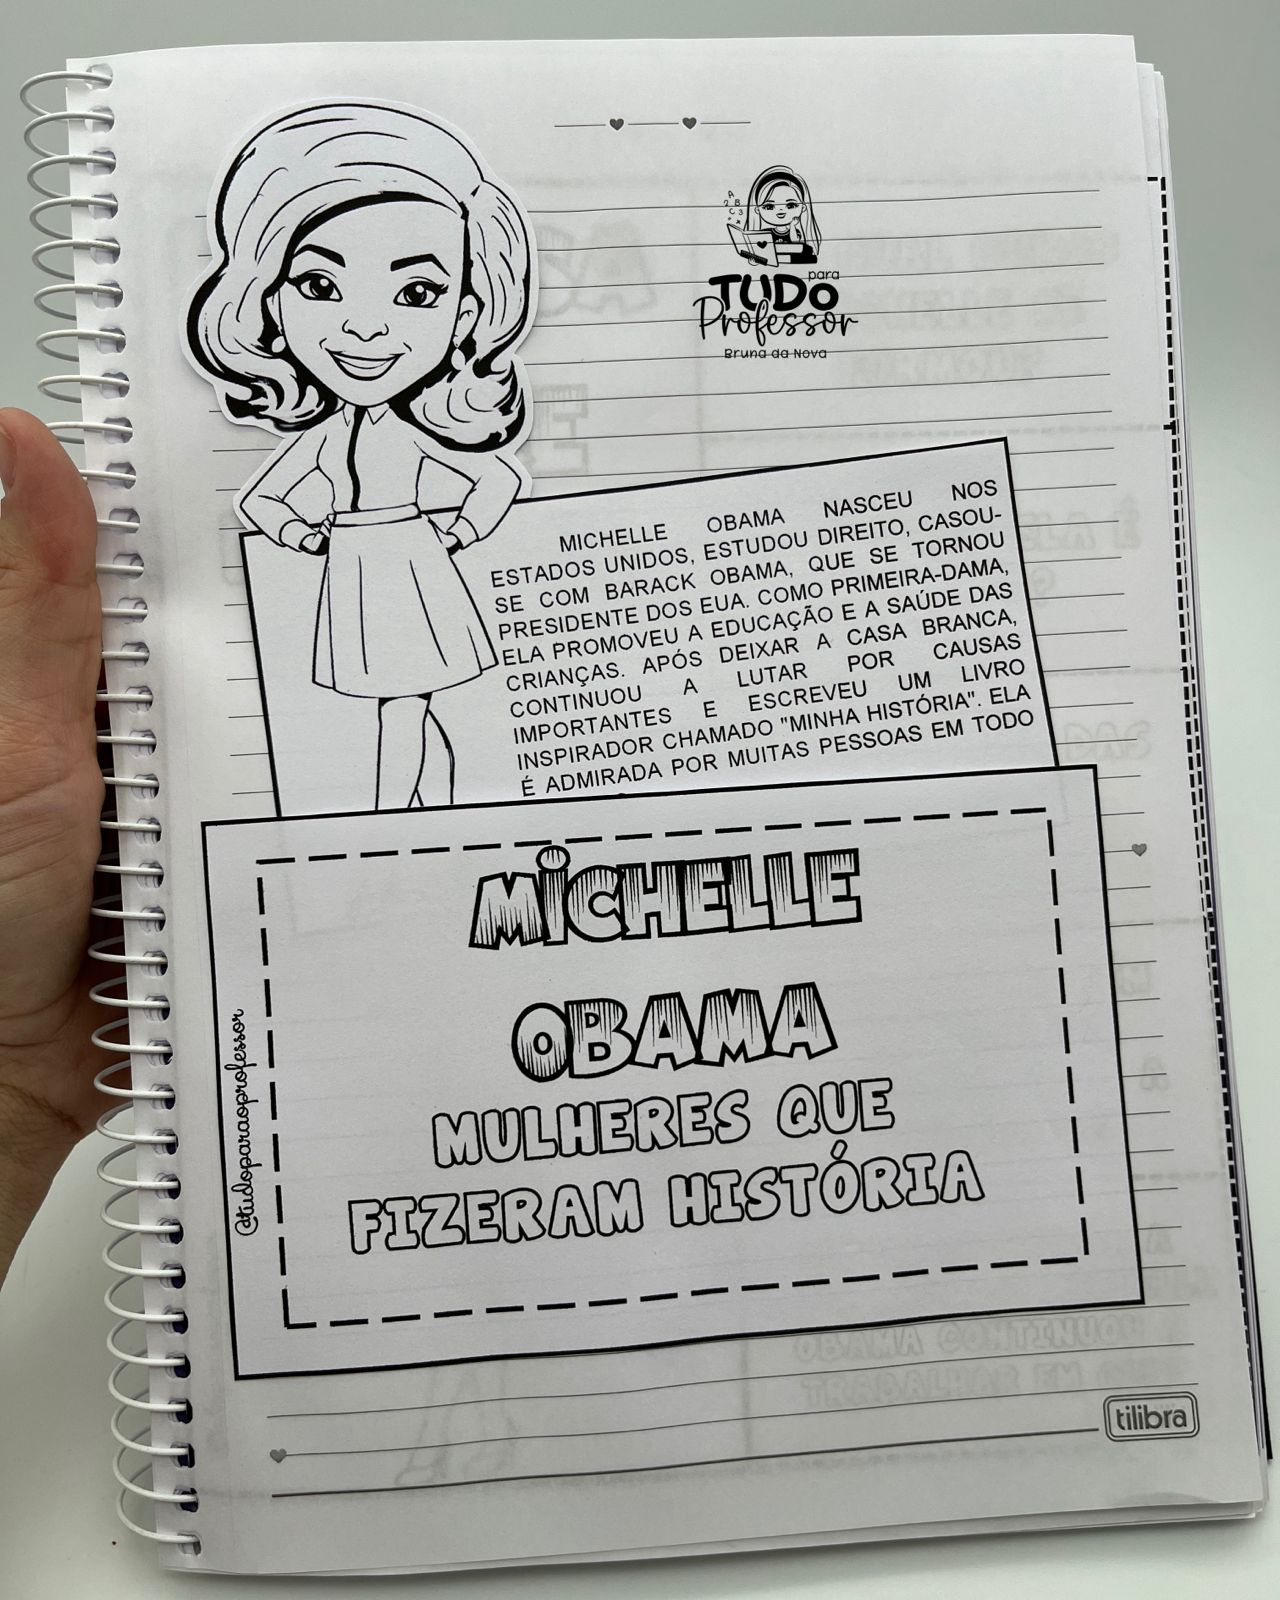 A
2 B
C 3
TUDO
para
Professor
Bruna da Nova
MICHELLE OBAMA NASCEU NOS
ESTADOS UNIDOS, ESTUDOU DIREITO, CASOU-
SE COM BARACK OBAMA, QUE SE TORNOU
PRESIDENTE DOS EUA. COMO PRIMEIRA-DAMA,
ELA PROMOVEU A EDUCAÇÃO E A SAÚDE DAS
CRIANÇAS. APÓS DEIXAR A CASA BRANCA,
CONTINUOU A LUTAR POR CAUSAS
IMPORTANTES E ESCREVEU UM LIVRO
INSPIRADOR CHAMADO "MINHA HISTÓRIA". ELA
É ADMIRADA POR MUITAS PESSOAS EM TODO
MICHELLE
OBAMA
MULHERES QUE
FIZERAM HISTÓRIA
@tudoparaoprofessor
OBAMA CONTINUOU
TRABALHAR EM
tilibra